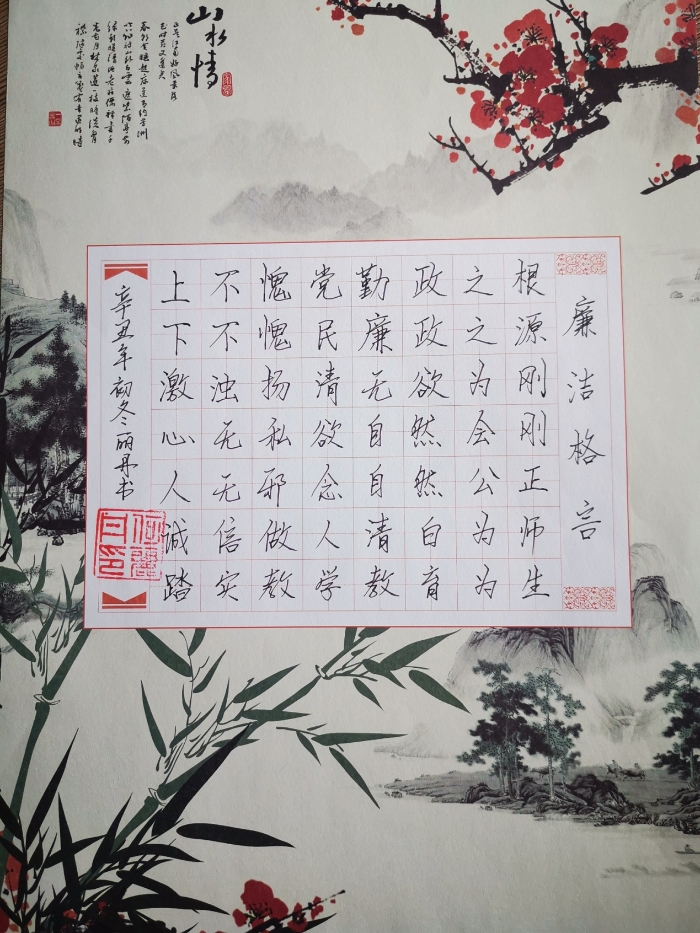 山水情
廉洁格言
上不愧党勤政之根
下不愧民廉政之源
激浊扬清无欲为刚
心无私欲自然会刚
人无邪念自然公正
诚信做人清白为师
踏实教学教育为生
辛丑年初冬丽丹书